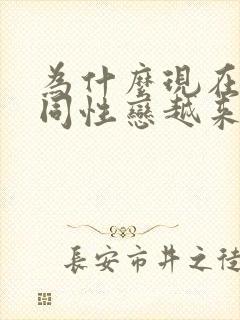 為什麼現在
同性戀越來
長安市井之徒